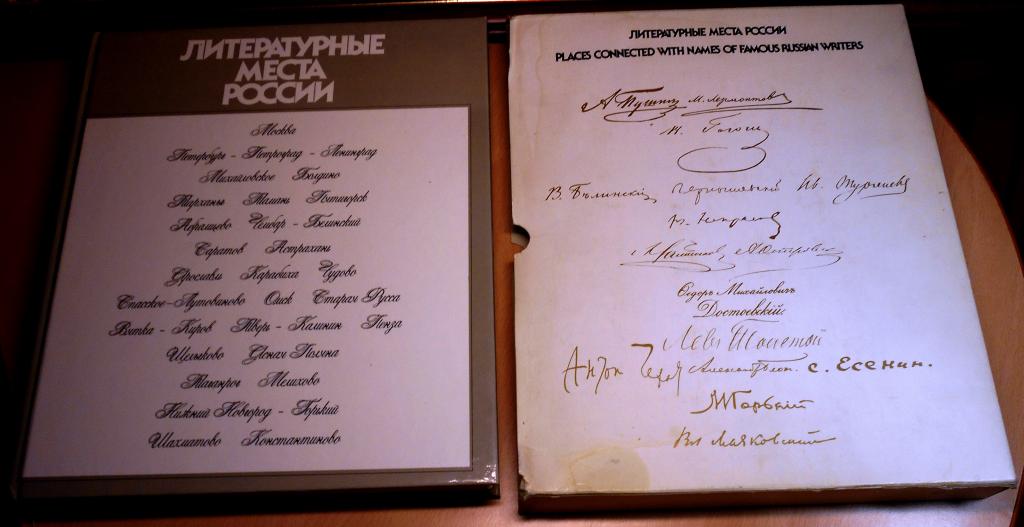 ЛИТЕРАТУРНЫЕ
МЕСТА
РОССИИ
Москва
Петербург - Петроград - Ленинград
Михайловское Болдино
Тарханы Тамань Пятигорск
Абрамцево Чембар - Белинский
Саратов Астрахань
Ярославль Карабиха Чудово
Спасское-Лутовиново Омск Старая Русса
Вятка - Киров Тверь - Калинин Пенза
Щелыково Ясная Поляна
Таганрог Мелихово
Нижний Новгород - Горький
Шахматово Константиново
ЛИТЕРАТУРНЫЕ МЕСТА РОССИИ
PLACES CONNECTED WITH NAMES OF FAMOUS RUSSIAN WRITERS
А Пушкин М. Лермонтов
Н. Гоголь
В. Бѣлинскій Чернышевский Ив. Тургенев
Н. Некрасов
Н. Салтыков, А. Островск
Ѳедоръ Михайловичъ
Достоевскій
Левъ Толстой
Антон Чехов Александр Блок. С. Есенин.
М Горький
Вл Маяковский